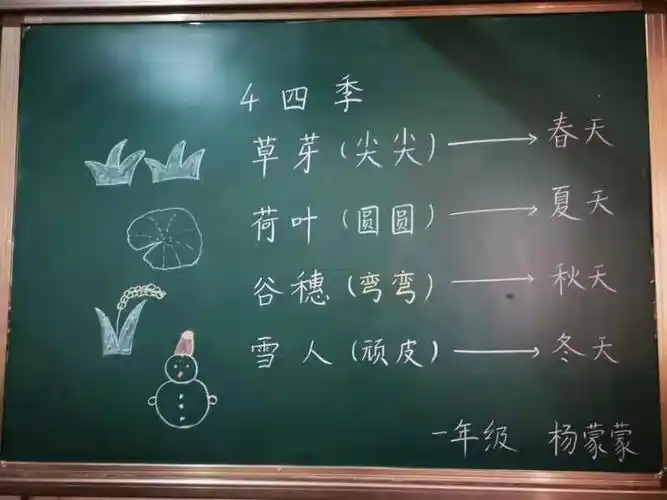 4 四季
草芽(尖尖)→春天
荷叶(圆圆)→夏天
谷穗(弯弯)→秋天
雪人(顽皮)→冬天
一年级 杨蒙蒙